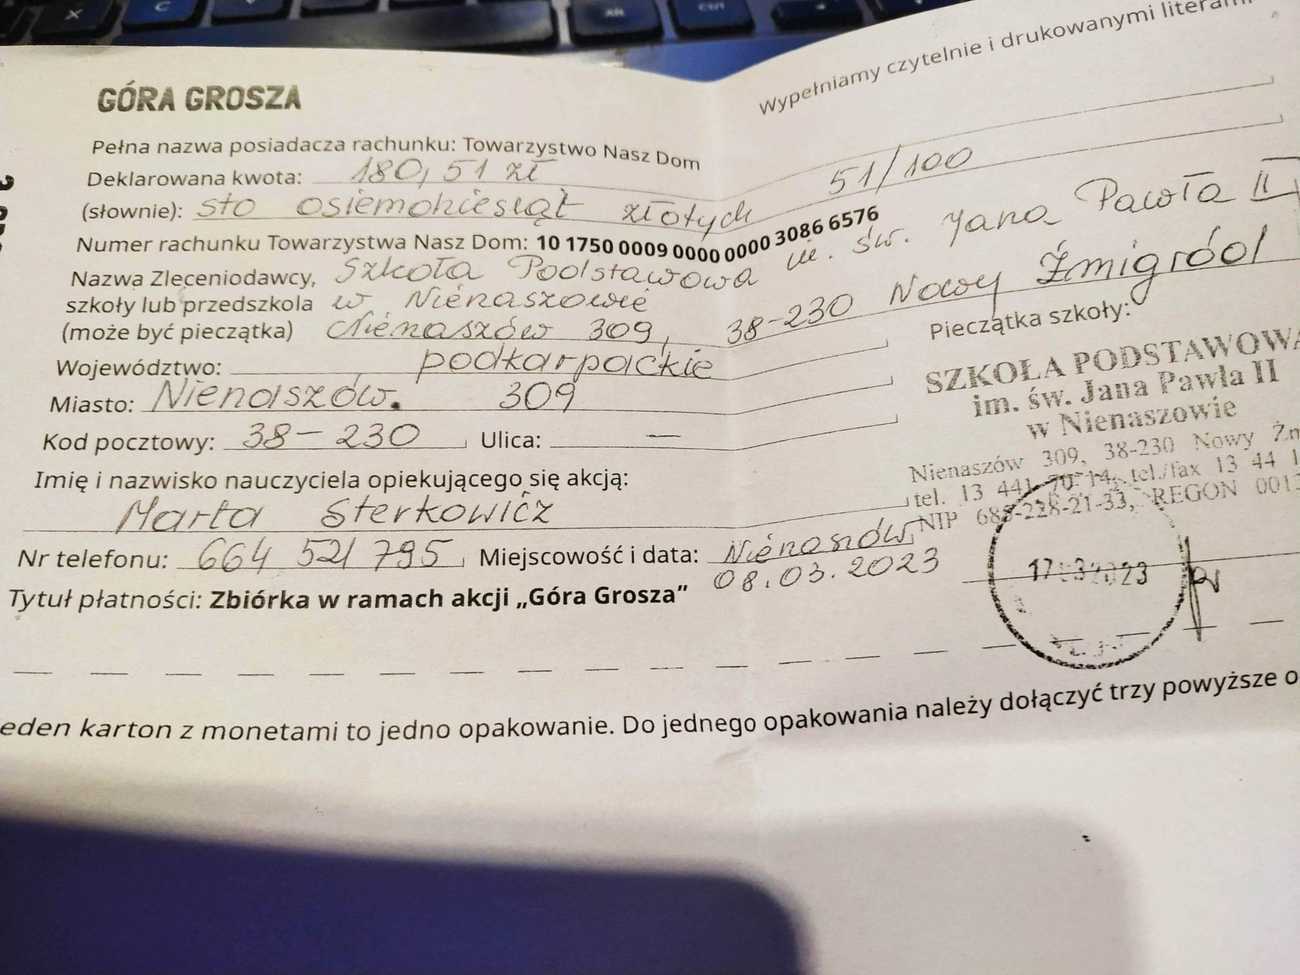 Wypełniamy czytelnie i drukowanymi literami
GÓRA GROSZA
Pełna nazwa posiadacza rachunku: Towarzystwo Nasz Dom
Deklarowana kwota: 180,51 zł
(słownie): sto osiemdziesiąt złotych 51/100
Numer rachunku Towarzystwa Nasz Dom: 10 1750 0009 0000 0000 3086 6576
Nazwa Zleceniodawcy, Szkoła Podstawowa im. św. Jana Pawła II
szkoły lub przedszkola w Nienaszowie
(może być pieczątka) Nienaszów 309, 38-230 Nowy Żmigród
Województwo: podkarpackie
Miasto: Nienaszów. 309
Kod pocztowy: 38-230 Ulica: —
Imię i nazwisko nauczyciela opiekującego się akcją:
Marta Sterkowicz
Nr telefonu: 664 521 795 Miejscowość i data: Nienaszów
08.03.2023
Tytuł płatności: Zbiórka w ramach akcji „Góra Grosza”
Pieczątka szkoły:
SZKOŁA PODSTAWOWA
im. św. Jana Pawła II
w Nienaszowie
Nienaszów 309, 38-230 Nowy Żm
tel. 13 441 70 14, tel./fax 13 44 1
NIP 685-228-21-33, REGON 0013
eden karton z monetami to jedno opakowanie. Do jednego opakowania należy dołączyć trzy powyższe o